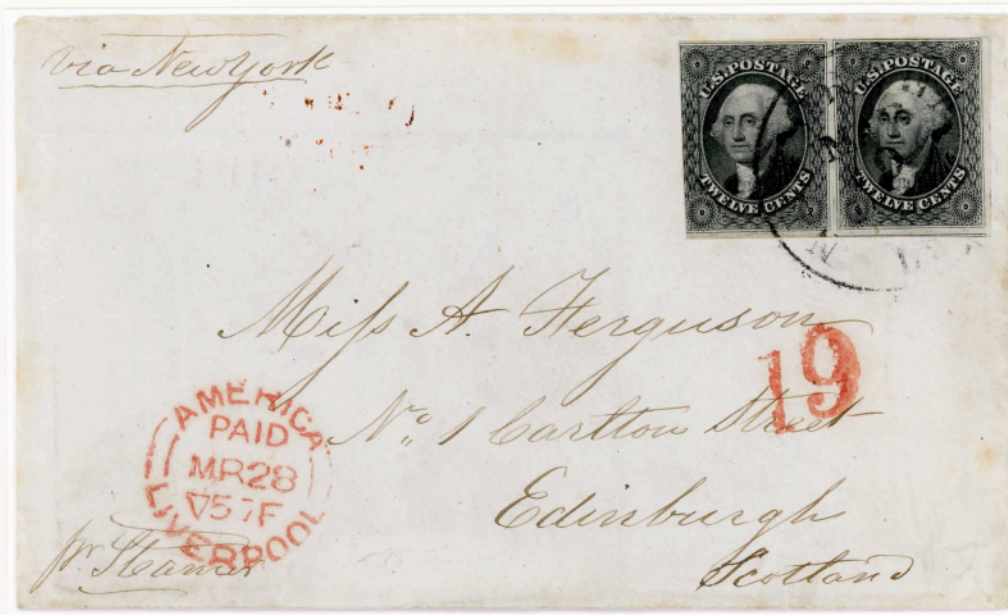 via New York
U.S. POSTAGE
TWELVE CENTS
U.S. POSTAGE
TWELVE CENTS
Miſs A. Ferguson
19
No. 1 Carlton Street
Edinburgh
Scotland
AMERICA
PAID
MR 28
57
LIVERPOOL
pr. Steamer